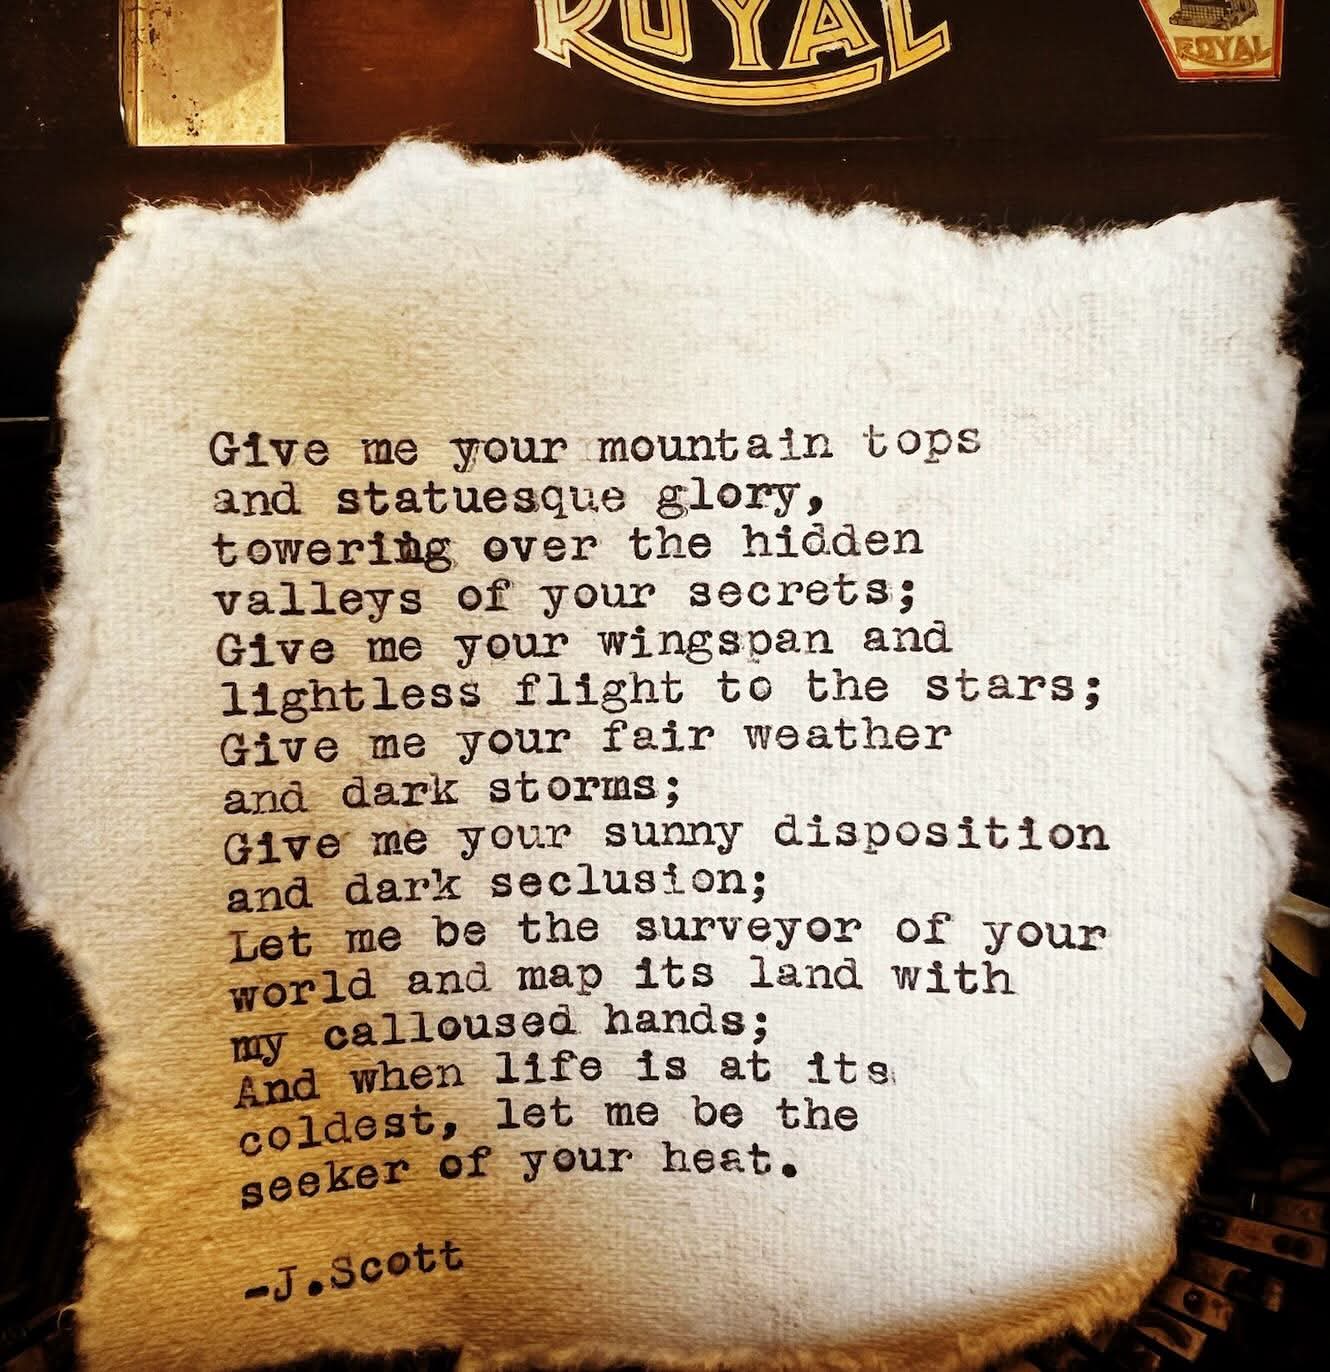 ROYAL
ROYAL
Give me your mountain tops
and statuesque glory,
towering over the hidden
valleys of your secrets;
Give me your wingspan and
lightless flight to the stars;
Give me your fair weather
and dark storms;
Give me your sunny disposition
and dark seclusion;
Let me be the surveyor of your
world and map its land with
my calloused hands;
And when life is at its
coldest, let me be the
seeker of your heat.
-J.Scott